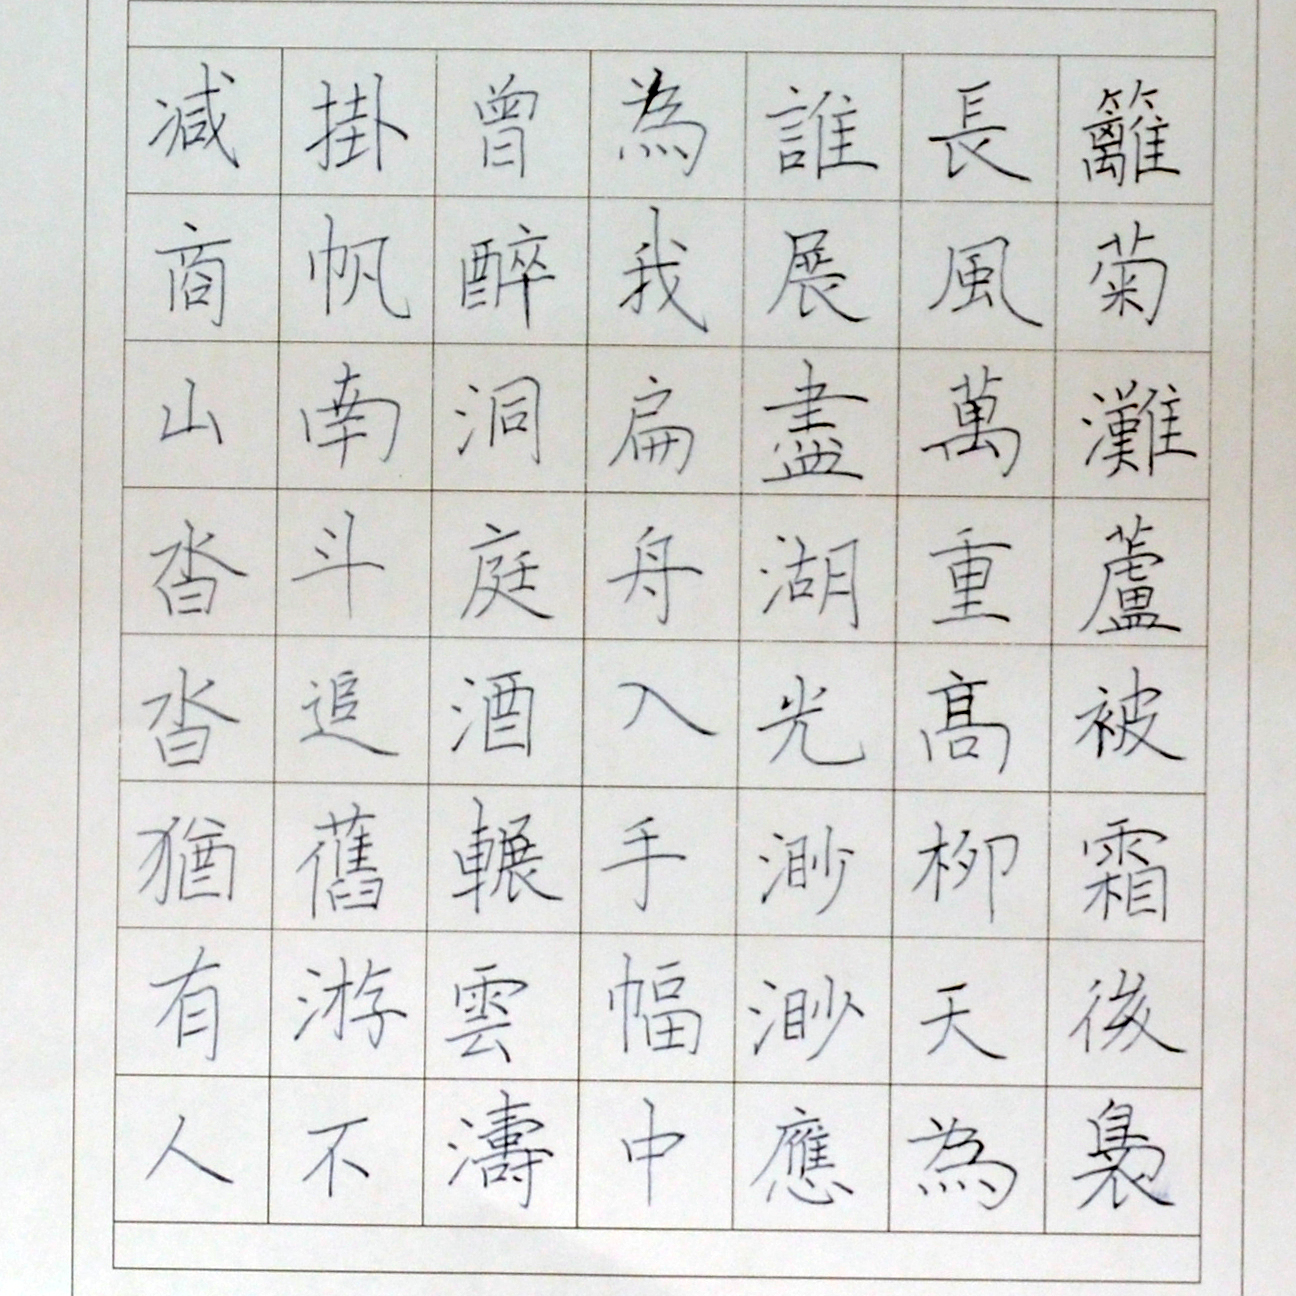 籬菊灘蘆被霜後裊
長風萬重高柳天為
誰展盡湖光渺渺應
為我扁舟入手幅中
曾醉洞庭酒輾雲濤
掛帆南斗追舊游不
減商山沓沓猶有人